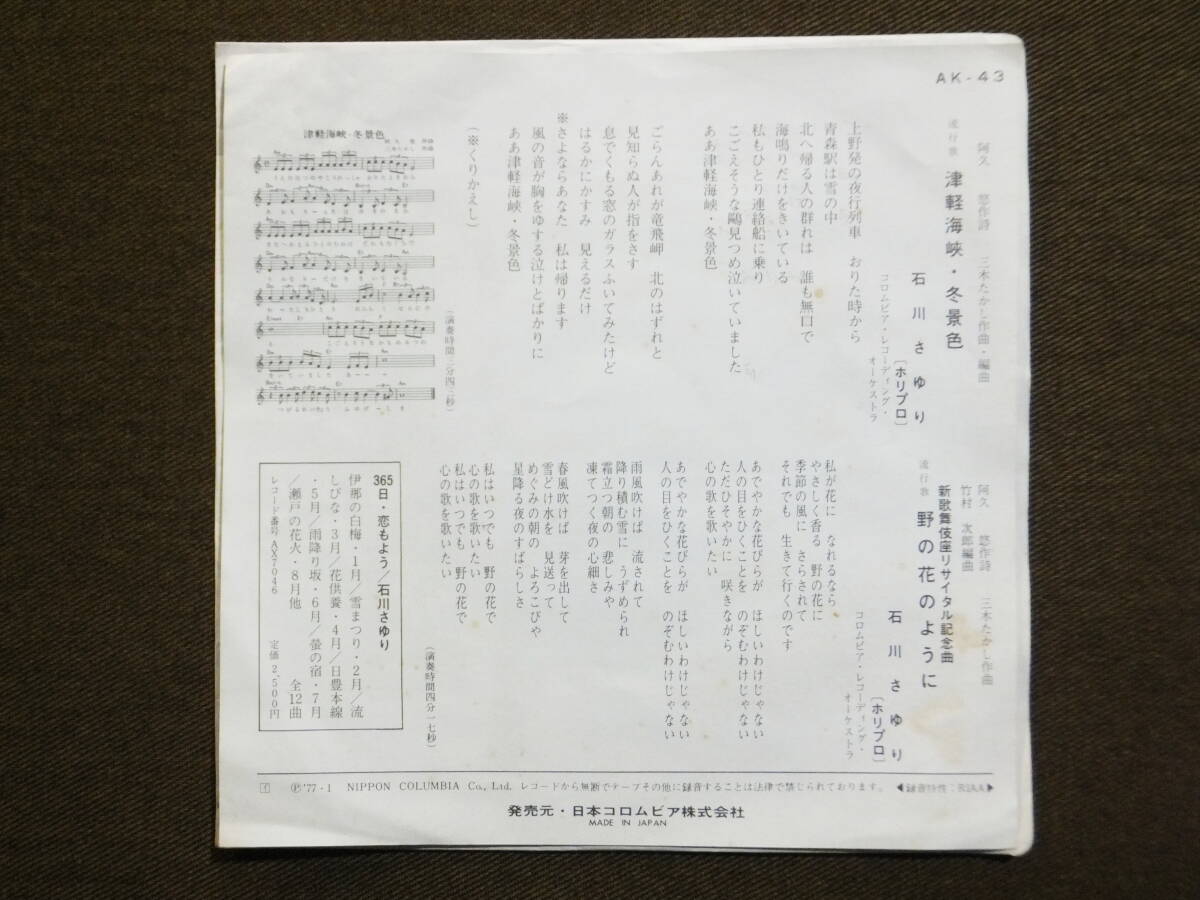 AK-43
阿久 悠作詩 三木たかし作曲・編曲
流行歌 津軽海峡・冬景色
石川さゆり
〔ホリプロ〕
コロムビア・レコーディング・
オーケストラ
上野発の夜行列車 おりた時から
青森駅は雪の中
北へ帰る人の群れは 誰も無口で
海鳴りだけをきいている
私もひとり連絡船に乗り
こごえそうな鷗見つめ泣いていました
ああ津軽海峡・冬景色
ごらんあれが竜飛岬 北のはずれと
見知らぬ人が指をさす
息でくもる窓のガラスふいてみたけど
はるかにかすみ 見えるだけ
※さよならあなた 私は帰ります
風の音が胸をゆする泣けとばかりに
ああ津軽海峡・冬景色
(※くりかえし)
津軽海峡・冬景色
阿久 悠作詩
竹村 次郎編曲
三木たかし作曲
新歌舞伎座リサイタル記念曲
流行歌 野の花のように
石川さゆり
〔ホリプロ〕
コロムビア・レコーディング・
オーケストラ
私が花に なれるなら
やさしく香る 野の花に
季節の風に さらされて
それでも 生きて行くのです
あでやかな花びらが ほしいわけじゃない
人の目をひくことを のぞむわけじゃない
ただひそやかに 咲きながら
心の歌を歌いたい
あでやかな花びらが ほしいわけじゃない
人の目をひくことを のぞむわけじゃない
雨風吹けば 流されて
降り積む雪に うずめられ
霜立つ朝の 悲しみや
凍てつく夜の心細さ
春風吹けば 芽を出して
雪どけ水を 見送って
めぐみの朝の よろこびや
星降る夜のすばらしさ
私はいつでも 野の花で
心の歌を歌いたい
私はいつでも 野の花で
心の歌を歌いたい
(演奏時間四分一七秒)
365日・恋もよう/石川さゆり
伊那の白梅・1月/雪まつり・2月/流
しびな・3月/花供養・4月/日豊本線
・5月/雨降り坂・6月/螢の宿・7月
/瀬戸の花火・8月他 全12曲
レコード番号 AX7046 定価 2,500円
f Ⓟ'77・1 NIPPON COLUMBIA Co., Ltd. レコードから無断でテープその他に録音することは法律で禁じられております。 ◀録音特性:RIAA▶
発売元・日本コロムビア株式会社
MADE IN JAPAN